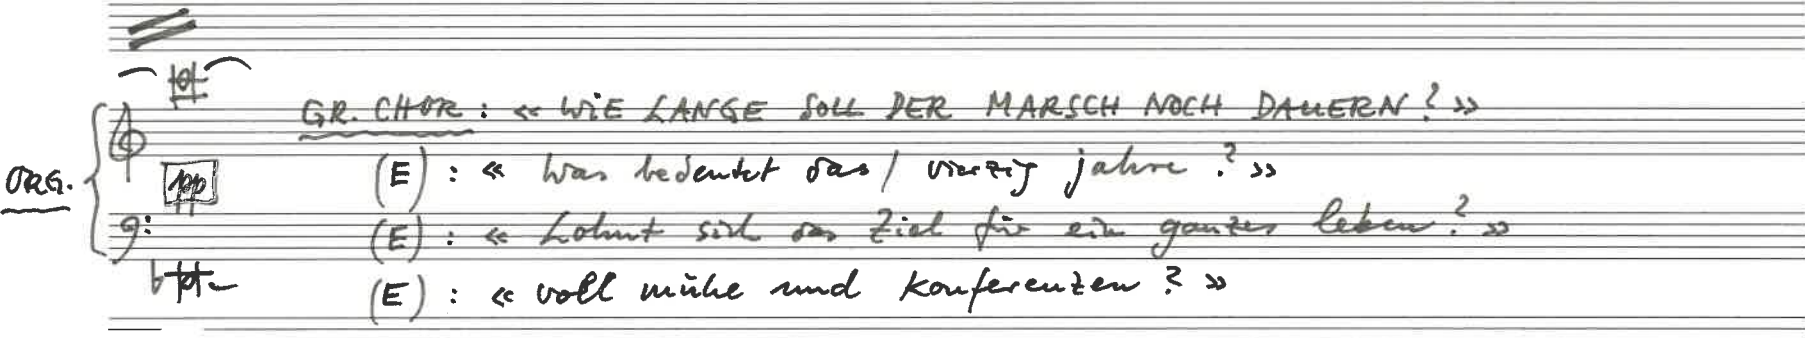 GR. CHOR : « WiE LANGE SOLL DER MARSCH NOCH DAUERN ? »
ORG. pp (E) : « Was bedeutet das / vierzig jahre ? »
(E) : « Lohnt sich das Ziel für ein ganzes leben ? »
(E) : « voll mühe und Konferenzen ? »